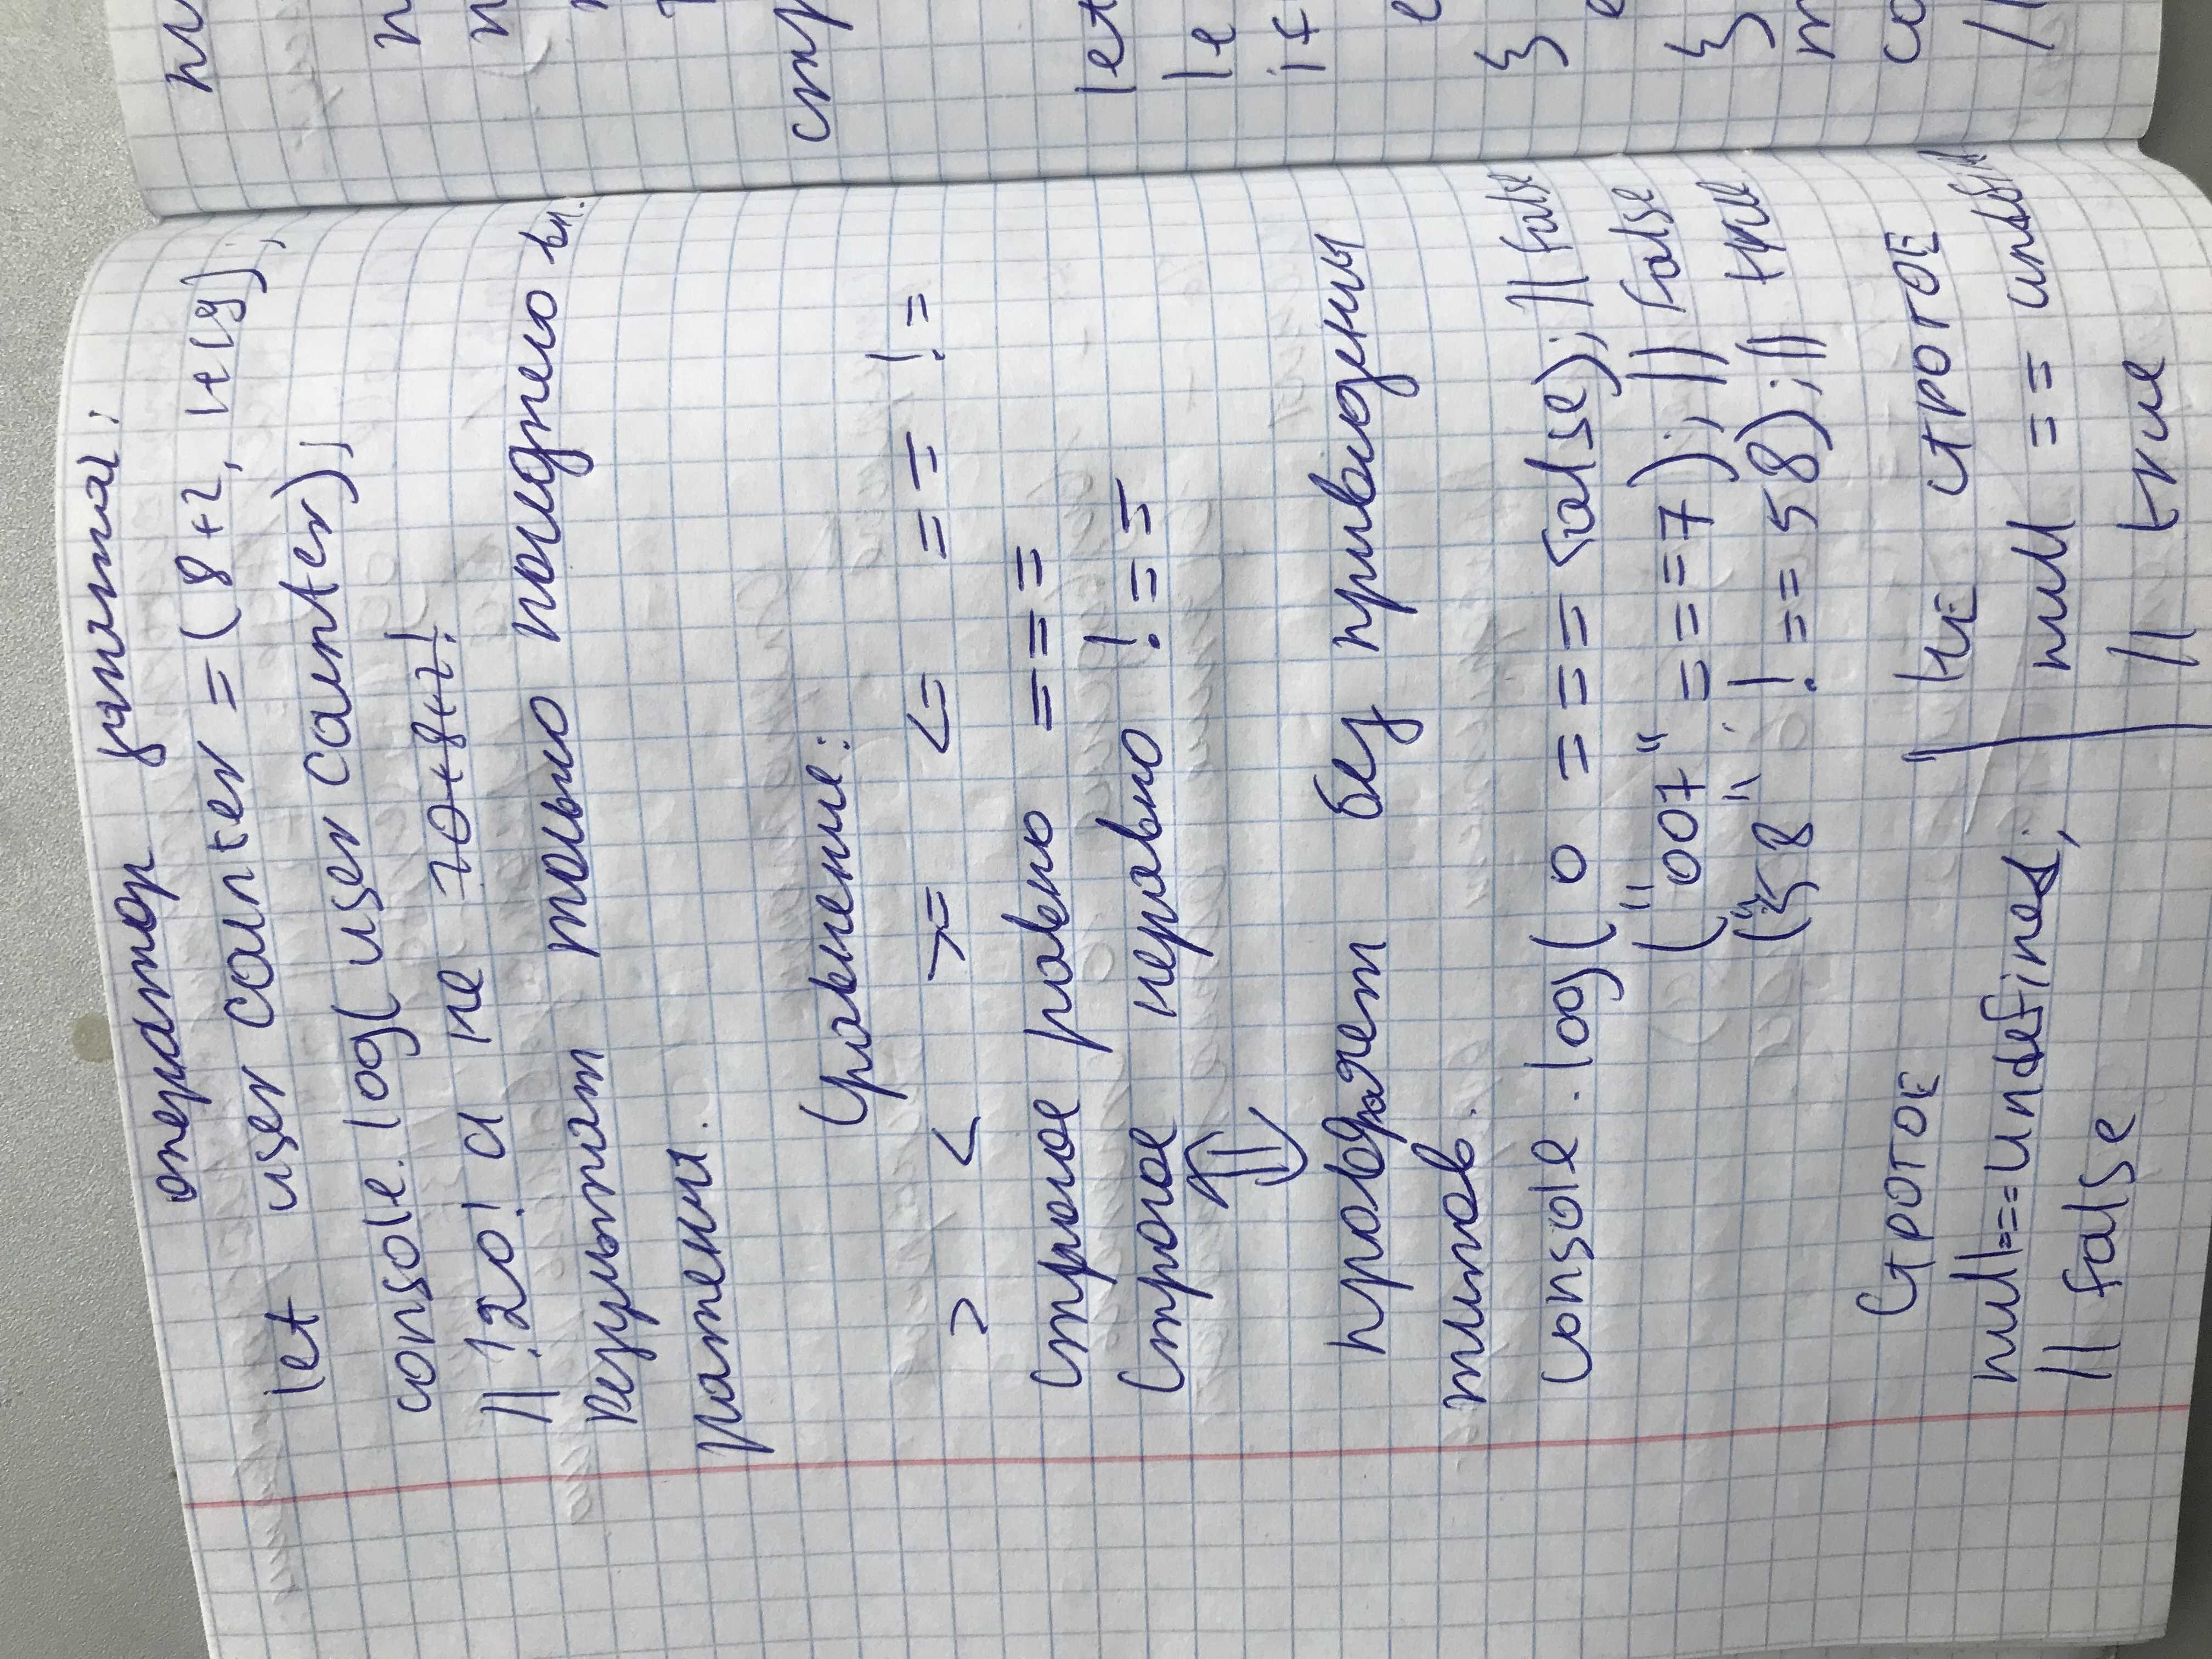 оператор запятая:
let user counter = ( 8+2, 1+19);
console.log( user counter);
// !20! а не 20+8+2!
результат только последнего вы.
ражения.
Сравнение:
> < >= <= == !=
Строгое равно ===
Строгое неравно !==
проверяет без приведения
типов.
console.log( 0 === false); // false
("007" === 7); // false
("58" !== 58); // true
Строгое
null===undefined;
// false
НЕ строгое
null == undefined
// true
стр
let
le
if
e
}
e
}
co
//